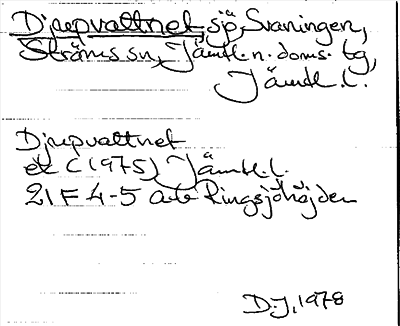 Djupvattnet, sjö, Svaningen,
Ströms sn, Jämtl. n. doms. tg,
Jämtl. l.
Djupvattnet
ek C (1975) Jämtl. l.
21 F 4-5 a-b Ringsjöhöjden
D.J, 1978